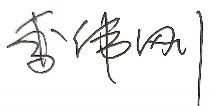 李伟刚